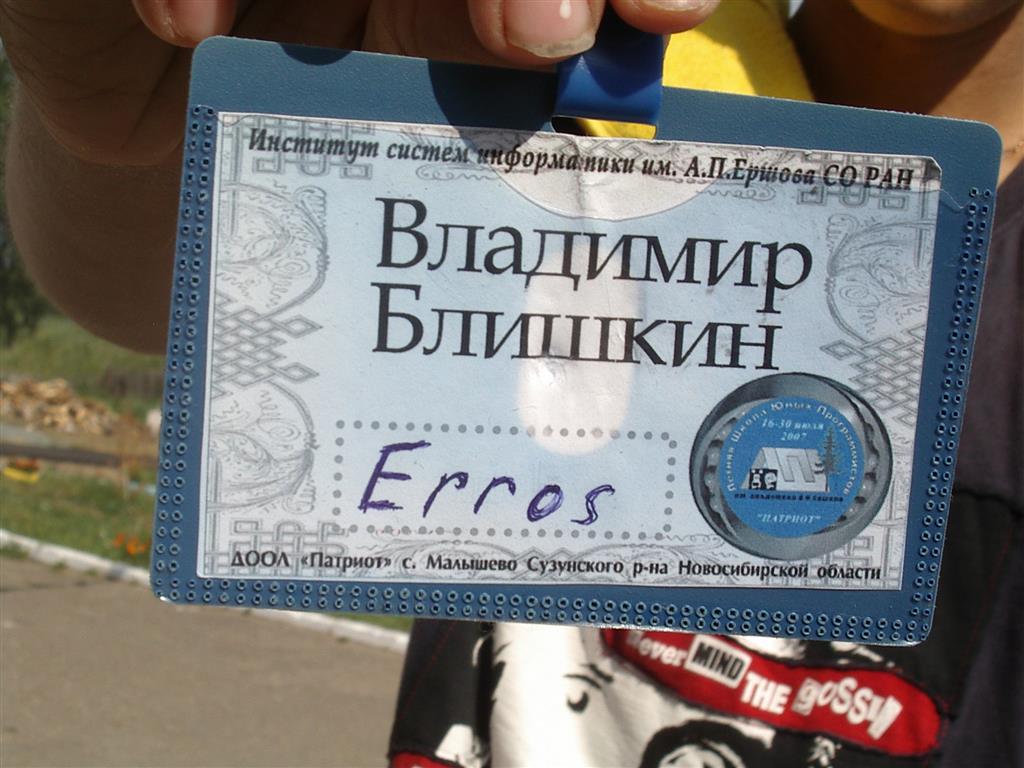 Институт систем информатики им. А.П.Ершова СО РАН
Владимир
Блишкин
Erros
Летняя Школа Юных Программистов
16-30 июля
2007
"ПАТРИОТ"
ДООЛ «Патриот» с. Малышево Сузунского р-на Новосибирской области
never MIND THE gossip